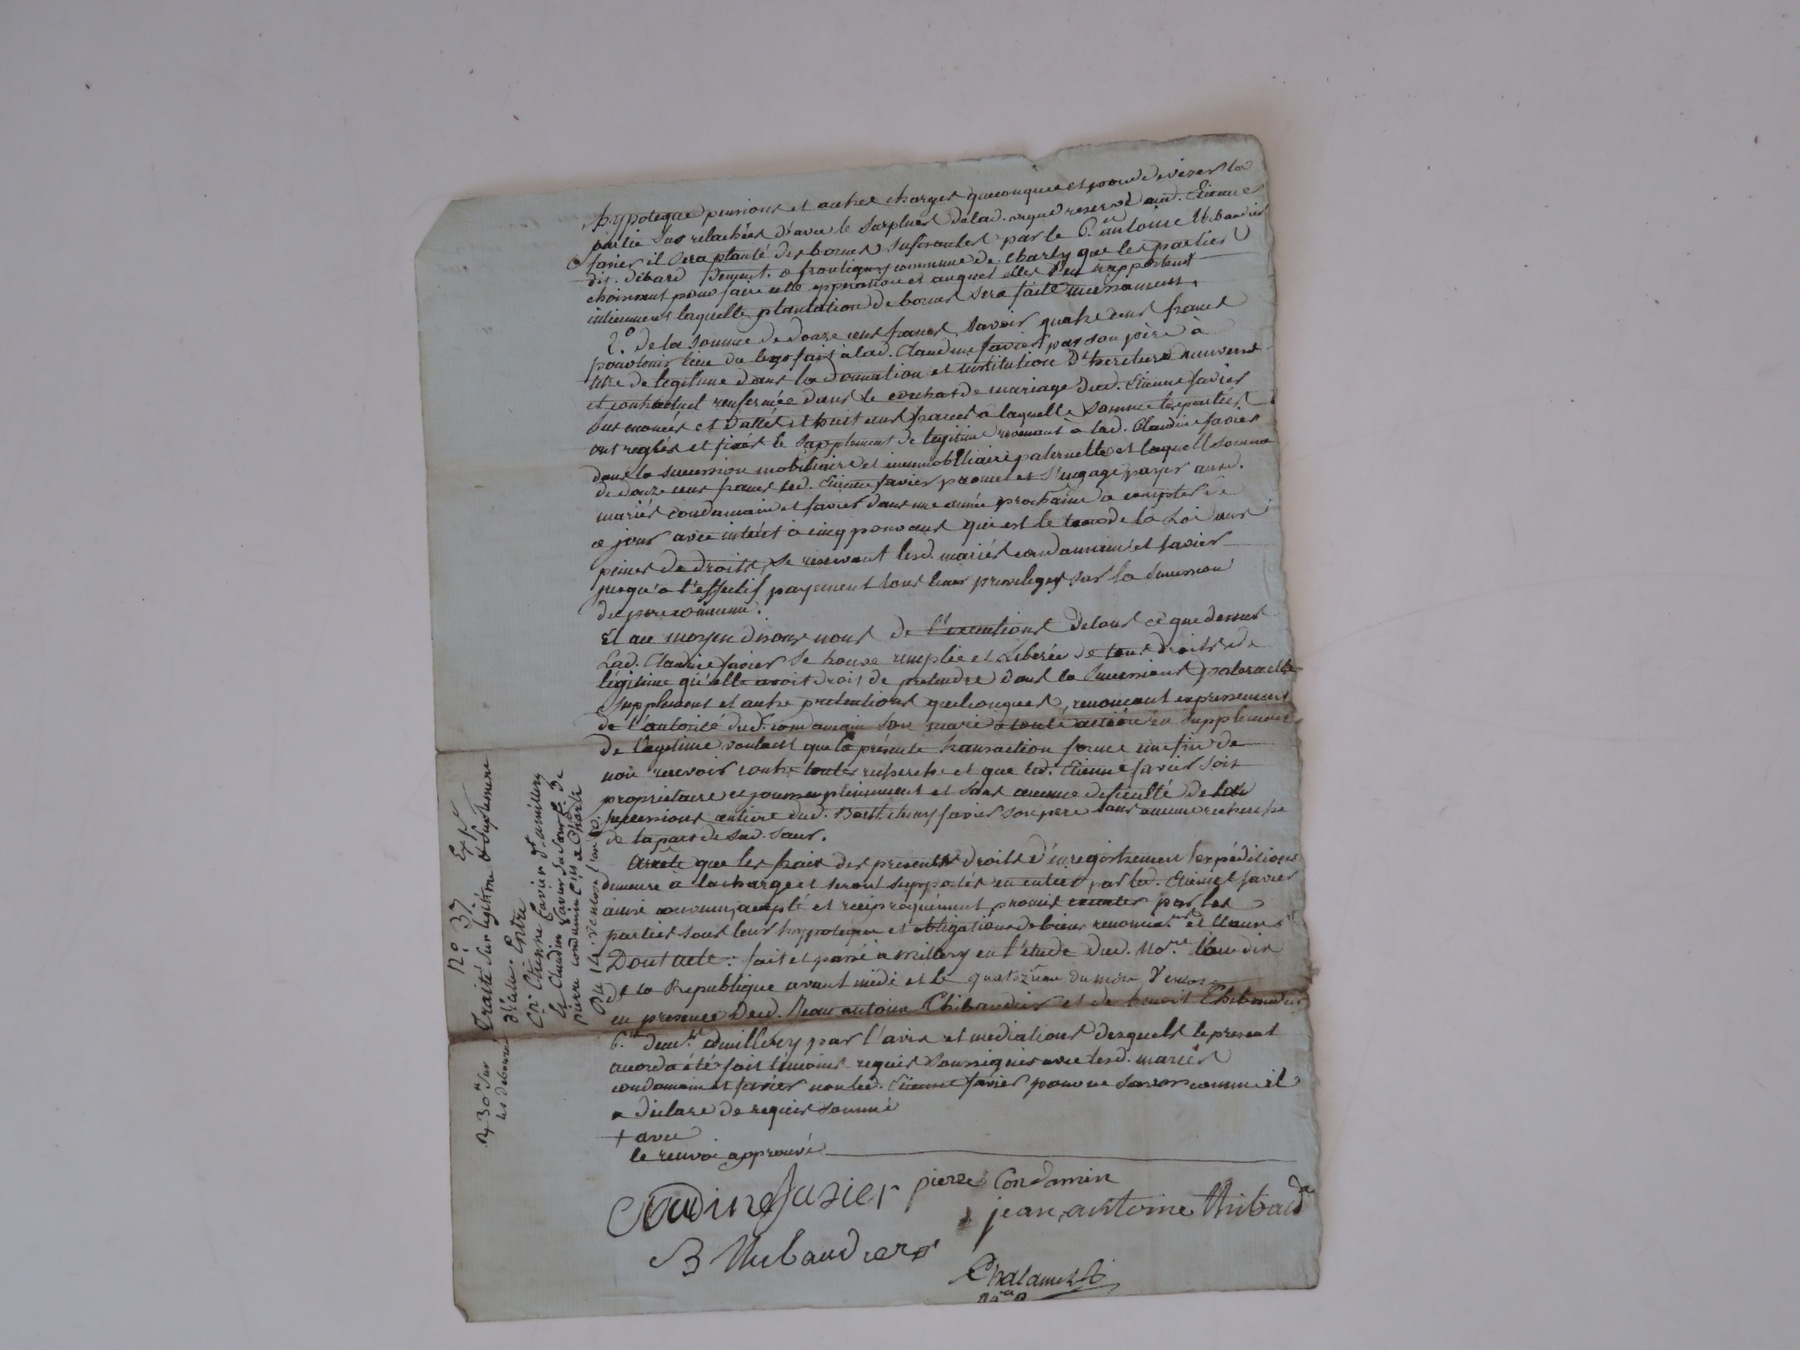 hypoteque pensions et autres charges quelconques et pour deviser la
partie sus relachée d'avec le surplus de lad. vigne reservé aud. Etienne
favier il sera planté des bornes suffisantes par le C.en antoine thibaudier
dit dibard demeurt. a frontigny commune de Charly que les parties
choisissent pour faire cette opperation et auquel elles s'en rapportent
entierement laquelle plantation de bornes sera faite incessament,
2.° de la somme de douze cens francs, savoir quatre cens francs
pour tenir lieu du legs fait à lad. Claudine favier par son père à
titre de legitime dans la donnation et institution d'heritier universel
et contractuel renfermée dans le contrat de mariage dud. Etienne favier
sus enoncés et datté et huit cens francs à laquelle somme les parties
ont reglés et fixés le supplement de legitime revenant à lad. Claudine favier
dans la succession mobiliaire et immobiliaire paternelle et laquelle somme
de douze cens francs led. Etienne favier promet et s'engage payer auxd.
mariés condamin et favier dans une année prochaine a compter de
ce jour avec intérét à cinq pour cent qui est le taux de la Loi aux
peines de droits, se reservant lesd. mariés condamin et favier
jusqu'a l'effectif payement tous leurs privileges sur la succession
du pere commun.
Et au moyen disons nous de l'execution de tout ce que dessus
Lad. Claudine favier se trouve remplie et Liberée de tous droits de
légitime qu'elle avoit droit de pretendre dans la succession paternelle
supplement et autre pretentions quelconques, renoncant expressement
de l'autorité dud. condamin son mari a toute action en supplement
de Legitime voulant que la présente transaction forme une fin de
non recevoir contre toute recherche et que led. Etienne favier soit
propriétaire et jouisse pleinement et sans aucune dificulté de la
succession entière dud. favier son pere sans aucune recherche
de la part de sad. sœur.
Arrêté que les frais des presentes droits d'enregistrement expéditions
demeure a la charge et seront supportés en entier par led. Etienne favier
ainsi convenu, accepté et reciproquement promis executer par les
parties sous leur hypoteque et obligations de biens renonciaons et clauses
Dont acte: fait et passé a millery en l'étude dud. No.re L'an dix
de la Republique avant midi et le quatorzieme du mois Ventose
en presence Desd. Jean antoine Thibaudier et de benoit Thibaudier
C.en demt. a millery par l'avis et mediations desquels le present
accord a été fait temoins requis soussignés avec lesd. mariés
condamin et favier non led. Etienne favier pour ne savoir comme il
a déclaré de requis sommé
+ avec
le renvoi approuvé
Claudine favier pierre Condamin
jean antoine thibaudr
B thibaudier
Chalamel
N.° 37. Exp.
Traité sur legitime & suplement
d'icelle. Entre
Cn. Etienne favier dt. a millery
et Claudine favier sa sœur f. de
pierre condamin C.en a Charly
Du 14. Ventose l'an 10.